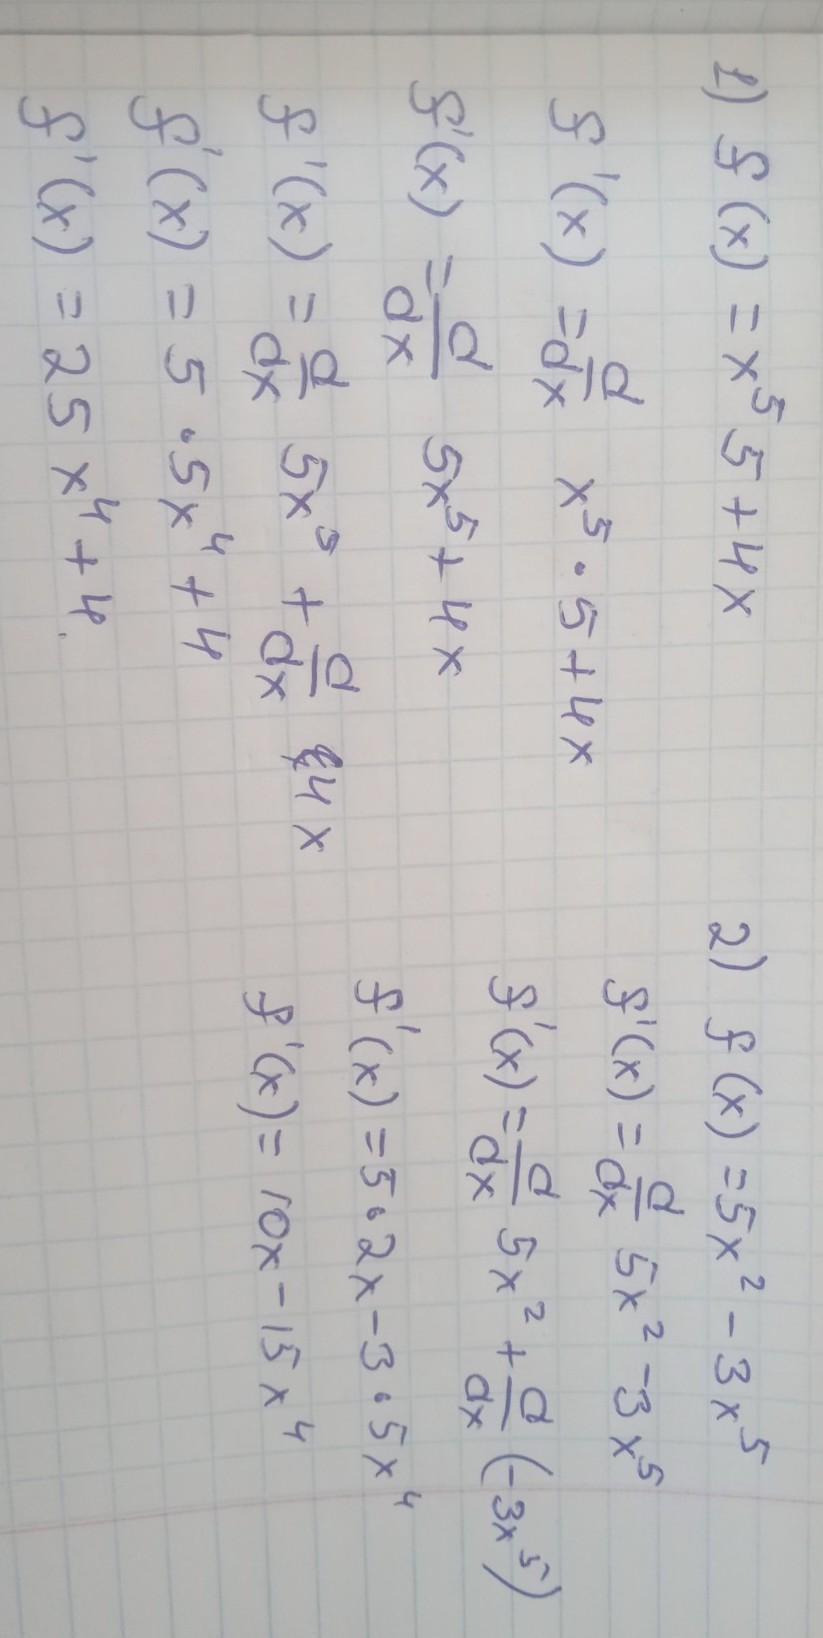 1) f(x) = x⁵5+4x
f'(x) = d/dx x⁵·5+4x
f'(x) = d/dx 5x⁵+4x
f'(x) = d/dx 5x⁵ + d/dx 4x
f'(x) = 5·5x⁴+4
f'(x) = 25x⁴+4.
2) f(x) = 5x² - 3x⁵
f'(x) = d/dx 5x² - 3x⁵
f'(x) = d/dx 5x² + d/dx (-3x⁵)
f'(x) = 5·2x-3·5x⁴
f'(x) = 10x-15x⁴